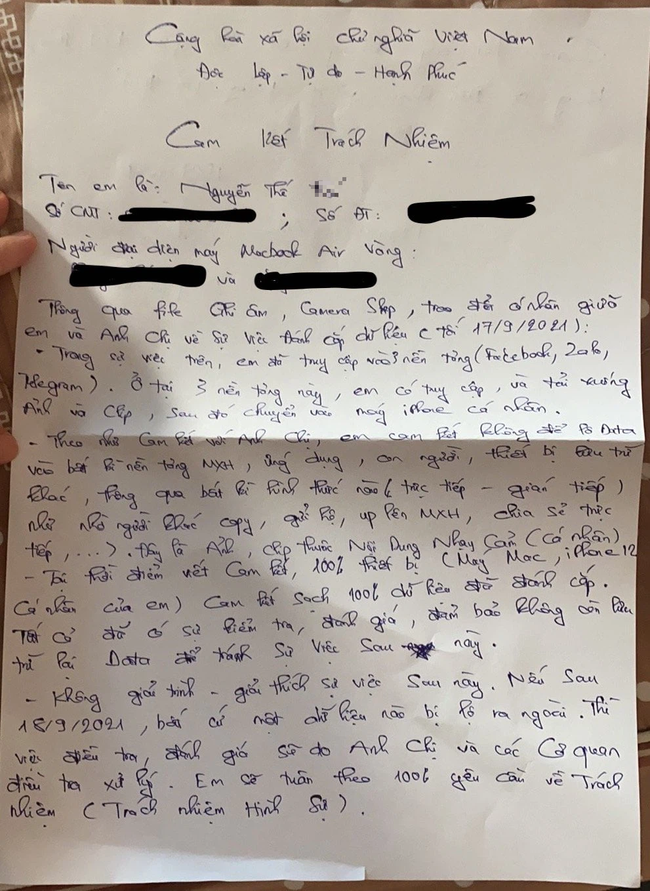 Cộng hoà xã hội chủ nghĩa Việt Nam.
Độc Lập - Tự do - Hạnh Phúc
Cam Kết Trách Nhiệm
Tên em là: Nguyễn Thế
Số CNT: ; Số ĐT:
Người đại diện máy Macbook Air Vàng:
và
Thông qua file Ghi âm, Camera Shop, trao đổi cá nhân giữa
em và Anh Chị về Sự việc đánh cắp dữ liệu (tối 17/9/2021):
- Trong sự việc trên, em đã truy cập vào 3 nền tảng (Facebook, Zalo,
Telegram). Ở tại 3 nền tảng này, em có truy cập, và tải xuống
Ảnh và Clip, sau đó chuyển vào máy iphone cá nhân.
- Theo như Cam kết với Anh Chị, em cam kết không để lộ Data
vào bất kì nền tảng MXH, ứng dụng, con người, thiết bị lưu trữ
khác, thông qua bất kì hình thức nào (trực tiếp - gián tiếp)
như nhờ người khác copy, gửi hộ, up lên MXH, chia sẻ trực
tiếp, ...). Đây là Ảnh, clip thuộc Nội Dung Nhạy Cảm (Cá nhân)
- Tại thời điểm viết Cam kết, 100% thiết bị (Máy Mac, iPhone 12
Cá nhân của em) Cam kết sạch 100% dữ liệu đã đánh cắp.
Tất cả đã có sự kiểm tra, đánh giá, đảm bảo không còn lưu
trữ lại Data để tránh Sự Việc Sau này.
- Không giải trình - giải thích sự việc Sau này. Nếu Sau
18/9/2021, bất cứ một dữ liệu nào bị lộ ra ngoài. Thì
việc điều tra, đánh giá sẽ do Anh Chị và các Cơ quan
điều tra xử lý. Em sẽ tuân theo 100% yêu cầu về Trách
nhiệm (Trách nhiệm Hình Sự).